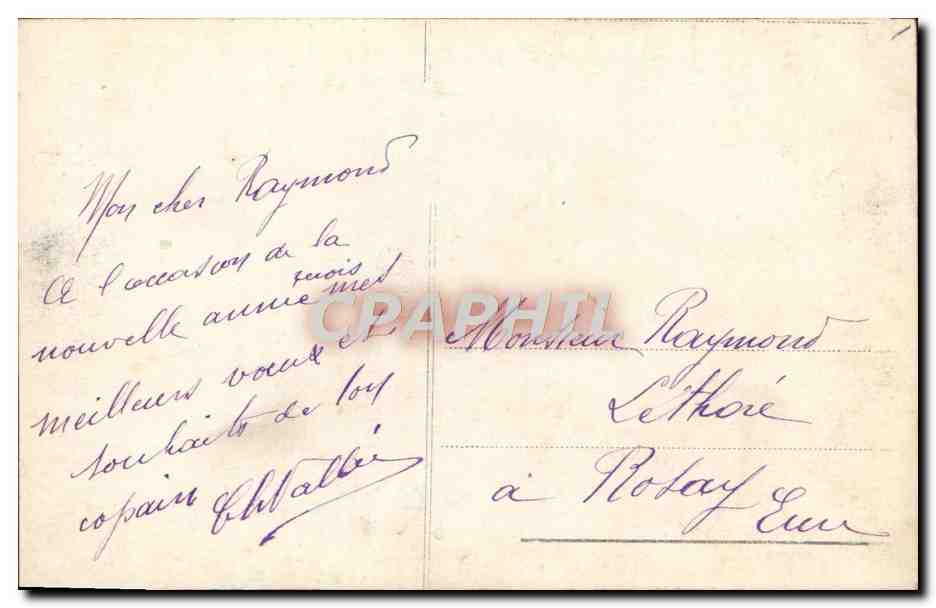 Mon cher Raymond
A l'occasion de la
nouvelle année reçois mes
meilleurs vœux et
souhaits de ton
copain
CPARPHIL
Monsieur Raymond
Léthoré
à Rosay
Eure